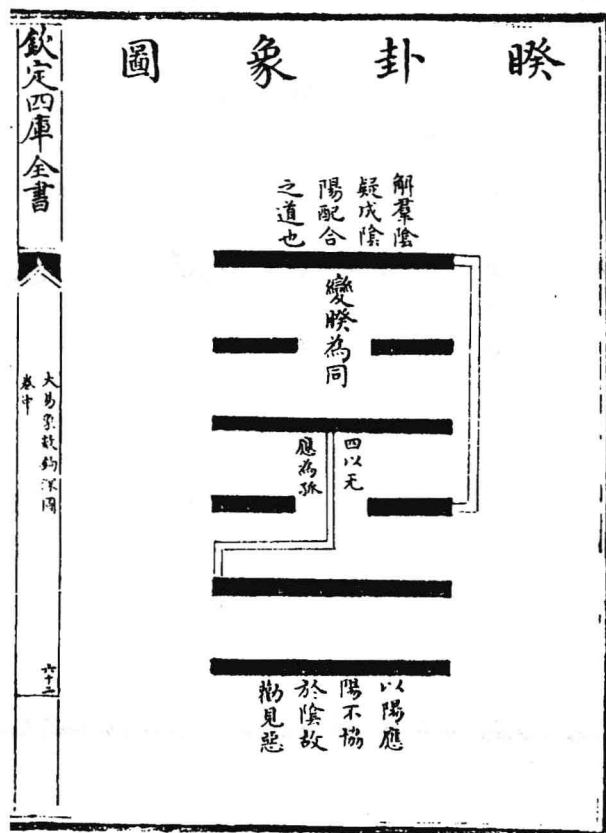 睽卦象圖
解羣陰
疑成陰
陽配合
之道也
變睽為同
四以无
應為孤
以陽應
陽不協
於陰故
勸見惡
欽定四庫全書
大易象數鈎深圖
卷中
六十二